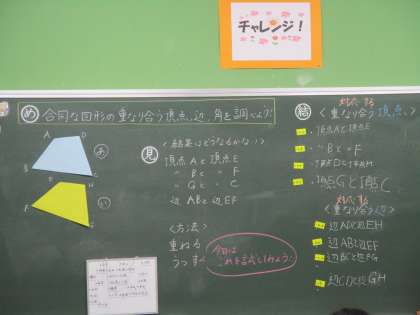 チャレンジ!
め 合同な図形の重なり合う頂点、辺、角を調べよう!
A D
B
あ
H
F
い
見
<結果はどうなるかな?>
頂点Aと頂点E
〃 Bと 〃 F
〃 Gと 〃 C
辺 ABと 辺 EF
<方法>
重ねる
うつす
今日は
これを試してみよう!
結
対応する
<重なり合う頂点>
・頂点Aと頂点E
・〃 Bと 〃 F
・頂点Dと頂点H
・頂点Gと頂点C
対応する
<重なり合う辺>
・辺ADと辺EH
・辺ABと辺EF
・辺BCと辺FG
・辺CDと辺GH